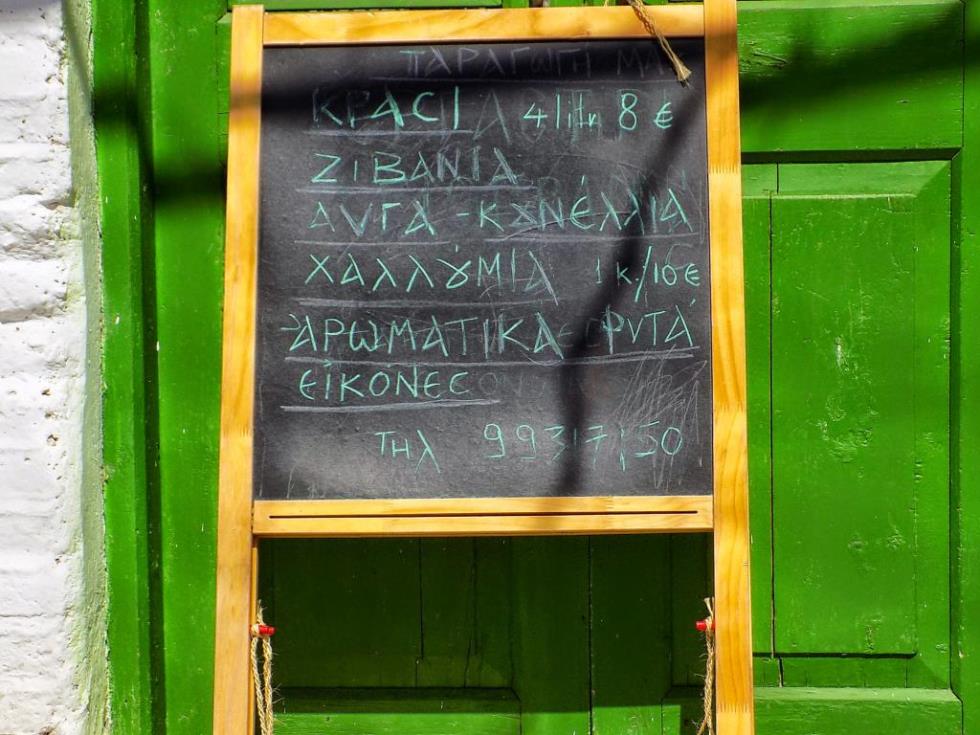 ΠΑΡΑΓΩΓΗ ΜΑΣ
ΚΡΑCΙ 4 litr 8 €
ΖΙΒΑΝΙΑ
ΑΥΓΑ - ΚΟΥΝΈΛΛΙΑ
ΧΑΛΛΎΜΙΑ 1 κ./10€
ΑΡΩΜΑΤΙΚΑ ΦΥΤΆ
ΕΙΚΌΝΕC
ΤΗλ 99317150